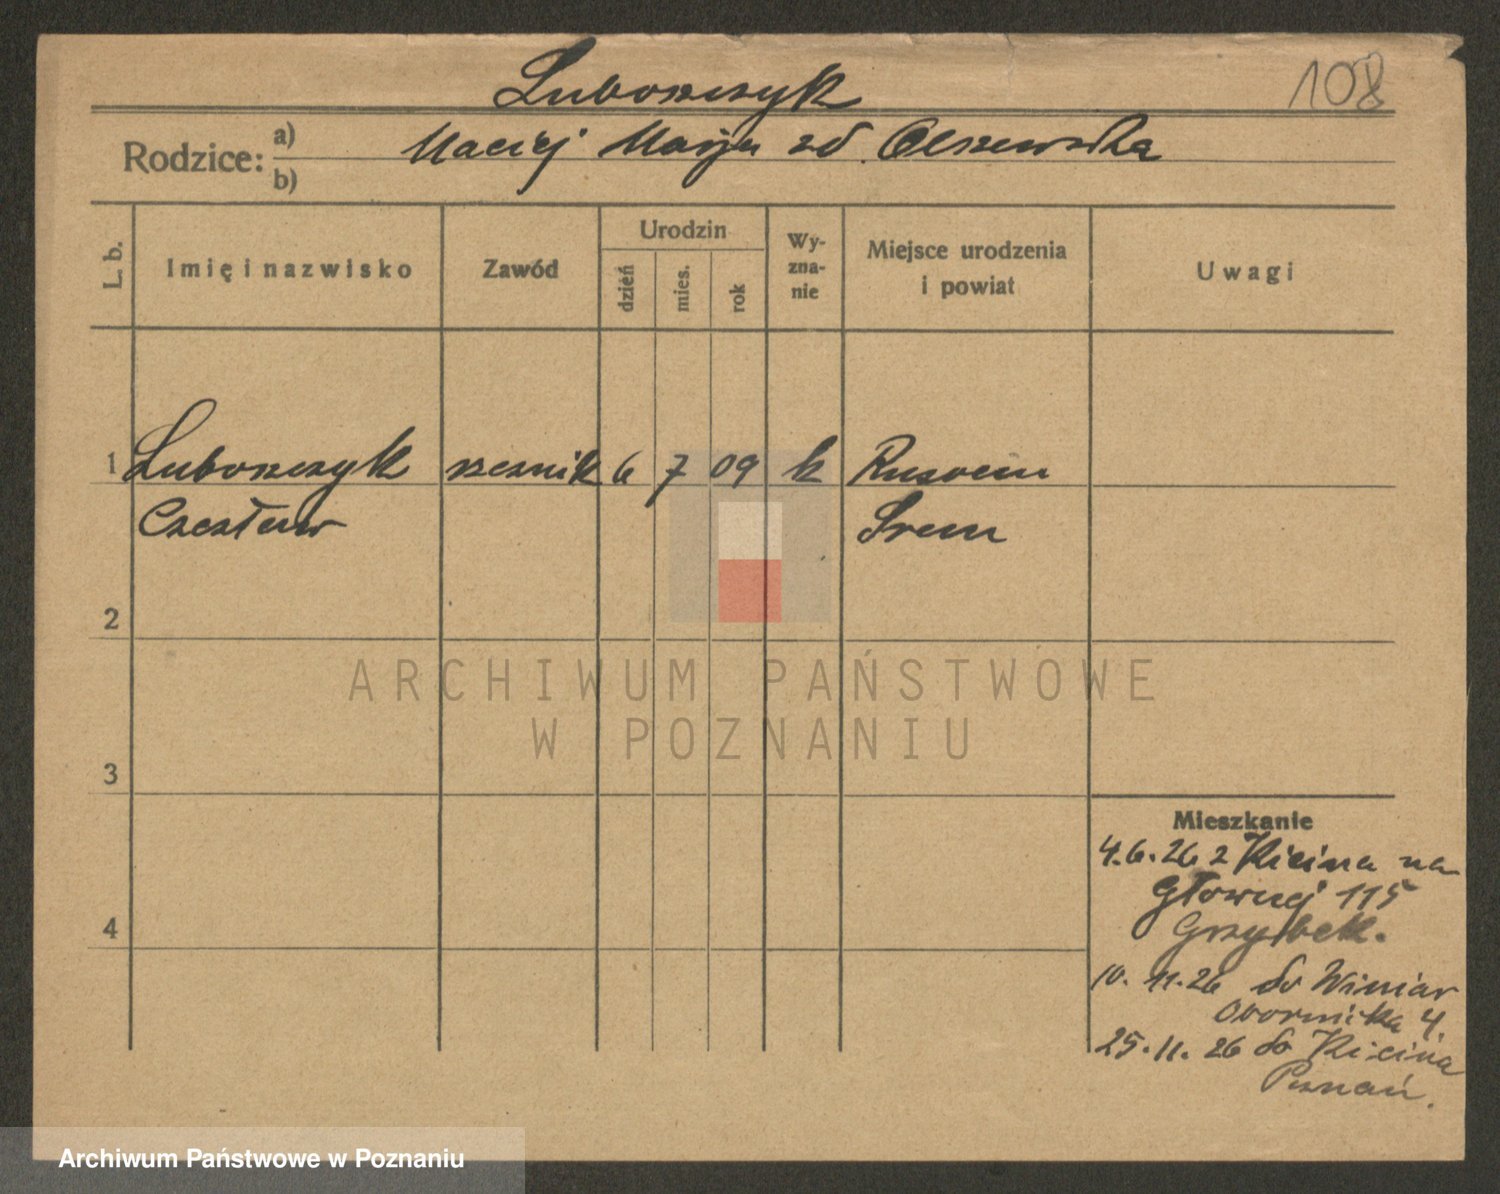 108
Luboszczyk
Rodzice: a) b)
Maciej Marja zd. Olszewska
L. b.
Imię i nazwisko
Zawód
Urodzin
dzień
mies.
rok
Wy-
zna-
nie
Miejsce urodzenia
i powiat
Uwagi
1 Luboszczyk 6 7 09 k Rusocin
Czesław Śrem
2
ARCHIWUM PAŃSTWOWE
W POZNANIU
3
Mieszkanie
4.6.26 z Kicina na
Głównej 115
Grzybek.
4
10.11.26 do Winiar
Obornicka 4.
25.11.26 do Kicina
Poznań.
Archiwum Państwowe w Poznaniu